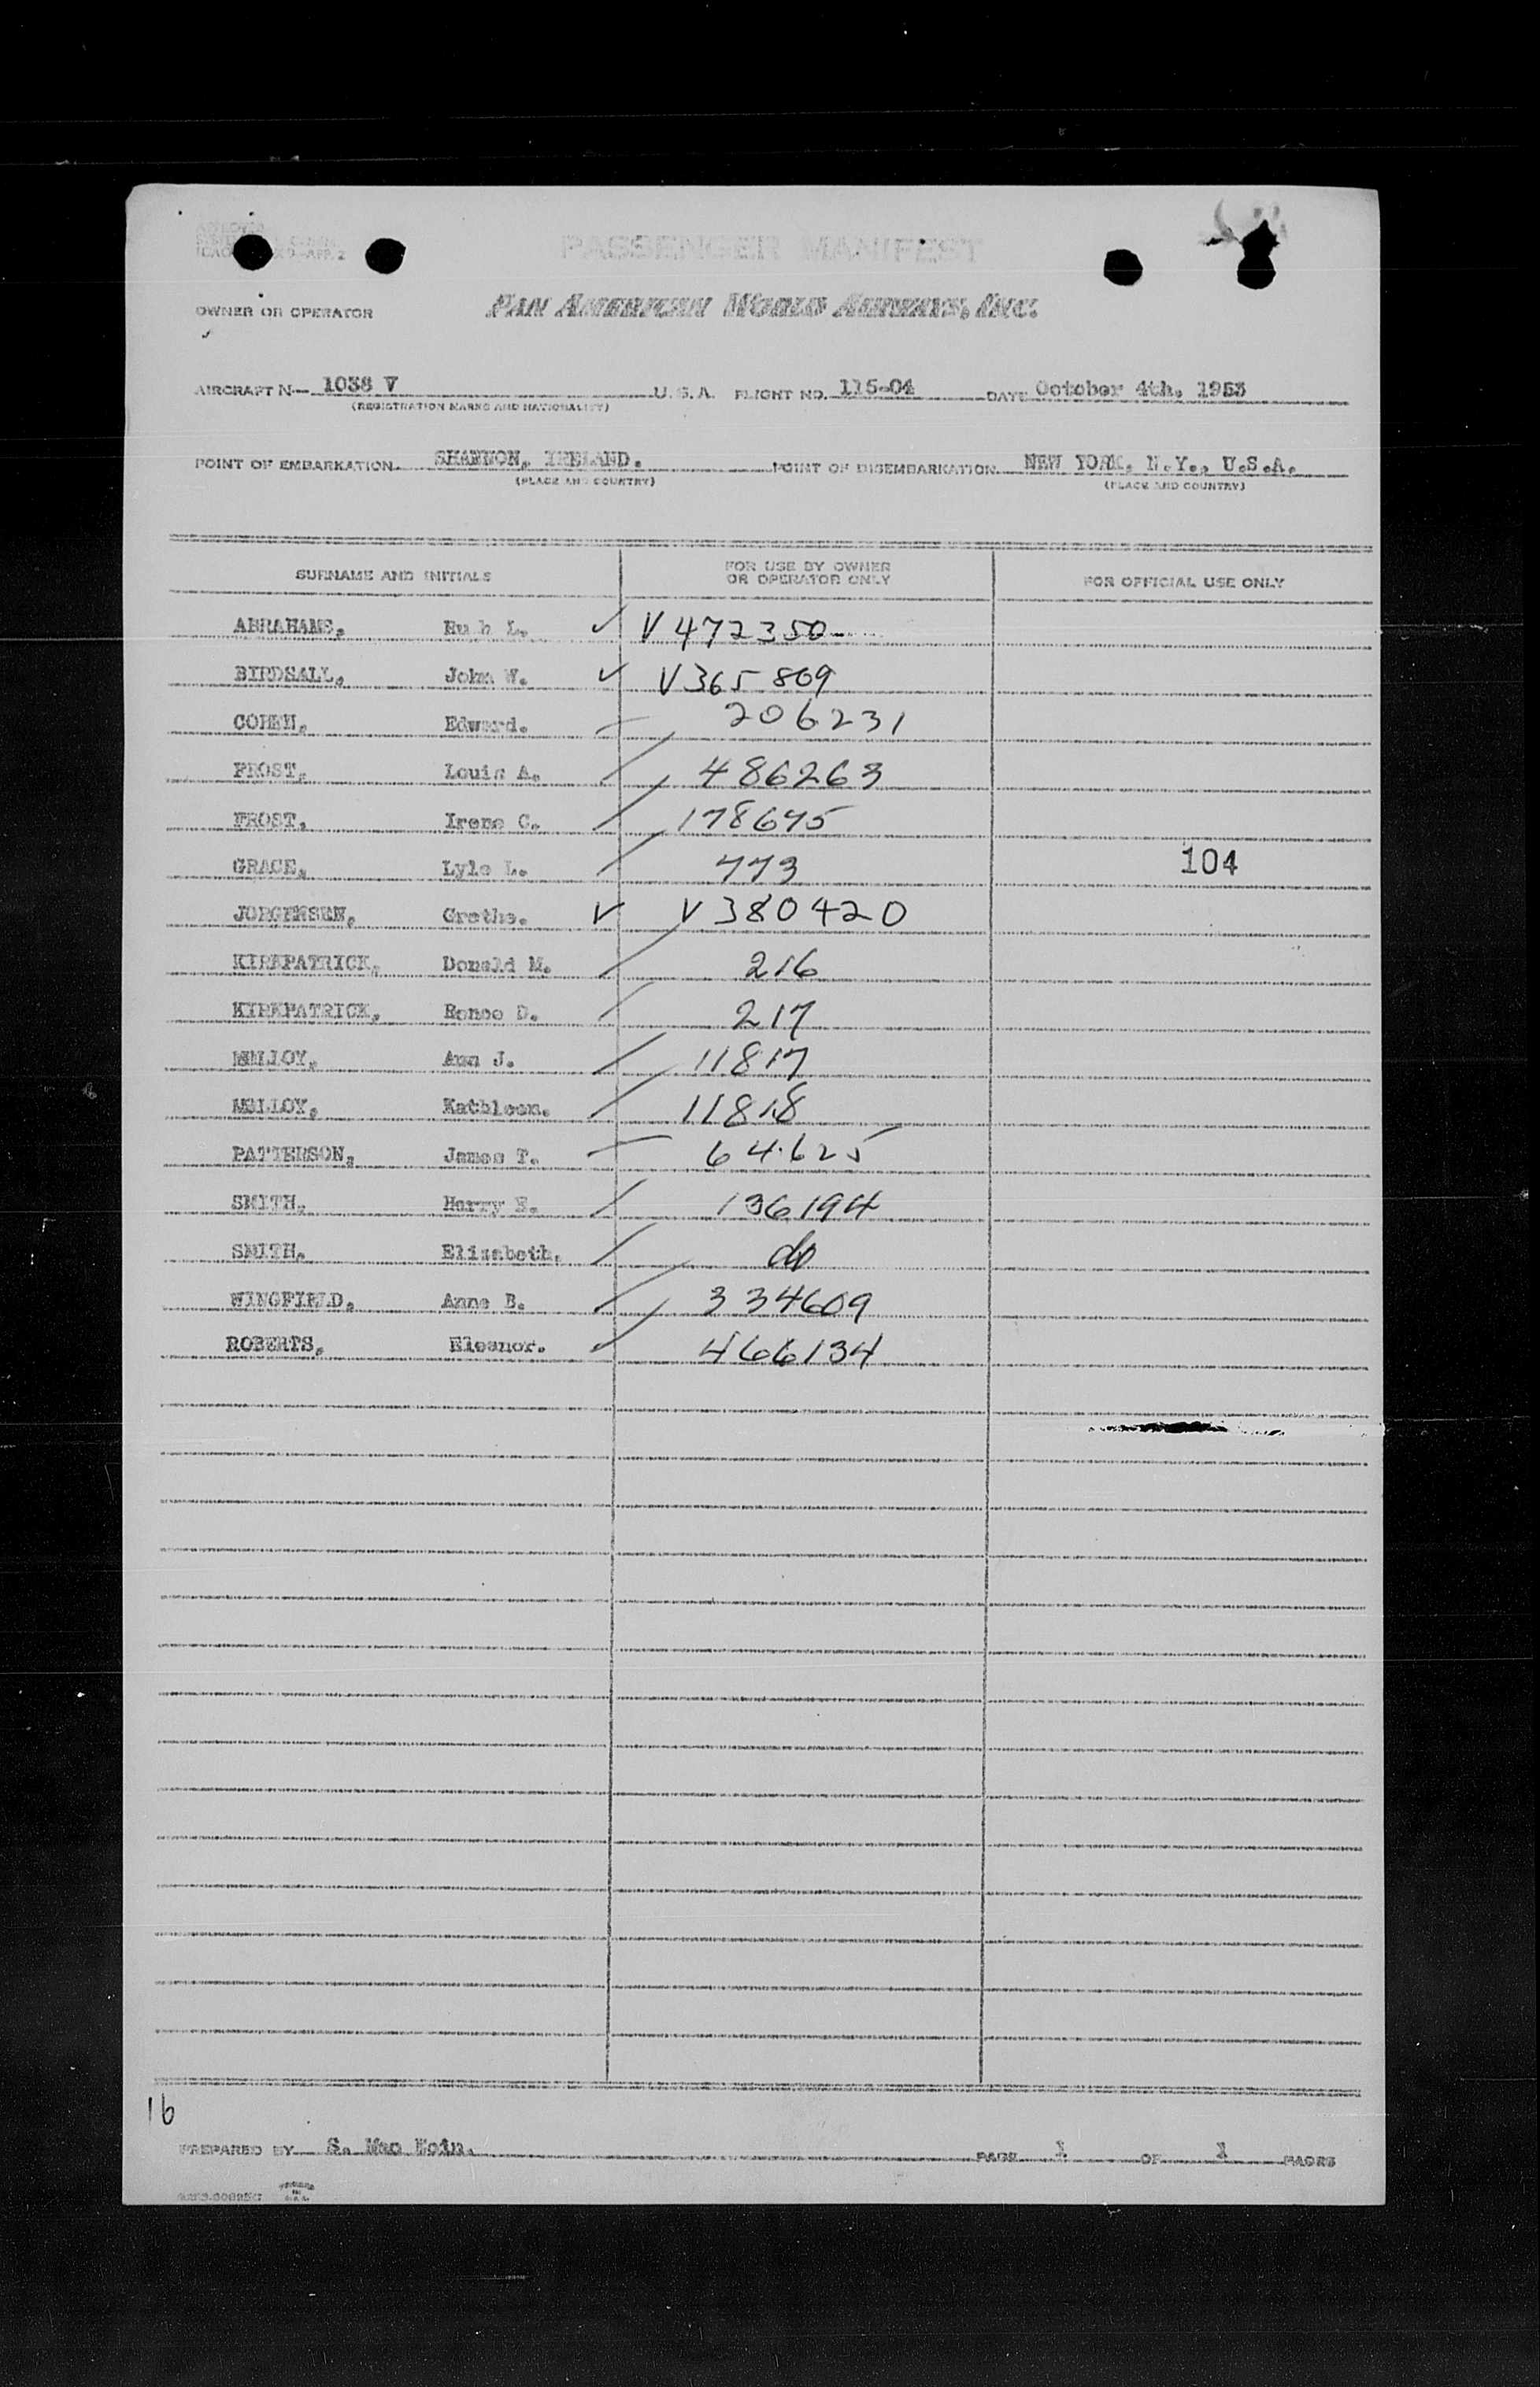 PASSENGER MANIFEST
OWNER OR OPERATOR PAN AMERICAN WORLD AIRWAYS, INC.
AIRCRAFT N— 1038 V U.S.A. FLIGHT NO. 115-04 DATE October 4th, 1953
(REGISTRATION MARKS AND NATIONALITY)
POINT OF EMBARKATION SHANNON, IRELAND. POINT OF DISEMBARKATION NEW YORK, N.Y., U.S.A.
(PLACE AND COUNTRY) (PLACE AND COUNTRY)
SURNAME AND INITIALS FOR USE BY OWNER OR OPERATOR ONLY FOR OFFICIAL USE ONLY
ABRAHAMS, Ru h L. V 472350
BIRDSALL, John W. V 365 809
COHEN, Edward. 206231
FROST, Louis A. 486263
FROST, Irene C. 178675
GRACE, Lyle L. 773 104
JORGENSEN, Grethe. V 380420
KIRKPATRICK, Donald M. 216
KIRKPATRICK, Renee D. 217
MOLLOY, Ann J. 11817
MOLLOY, Kathleen. 11818
PATTERSON, James T. 64625
SMITH, Harry E. 136194
SMITH, Elizabeth. do
WINGFIELD, Anne B. 334609
ROBERTS, Eleanor. 466134
16
PREPARED BY S. Mac PAGE 1 OF 1 PAGES